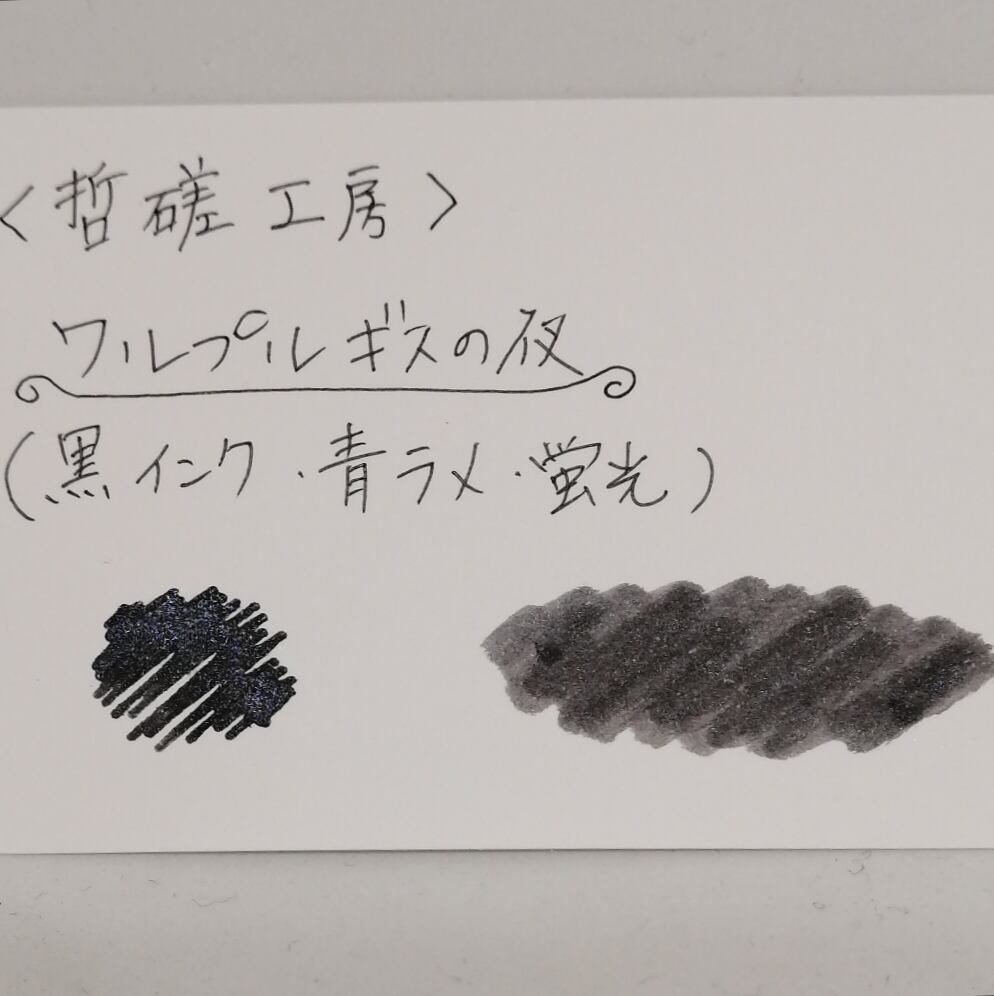 <哲磋工房>
ワルプルギスの夜
(黒インク・青ラメ・蛍光)